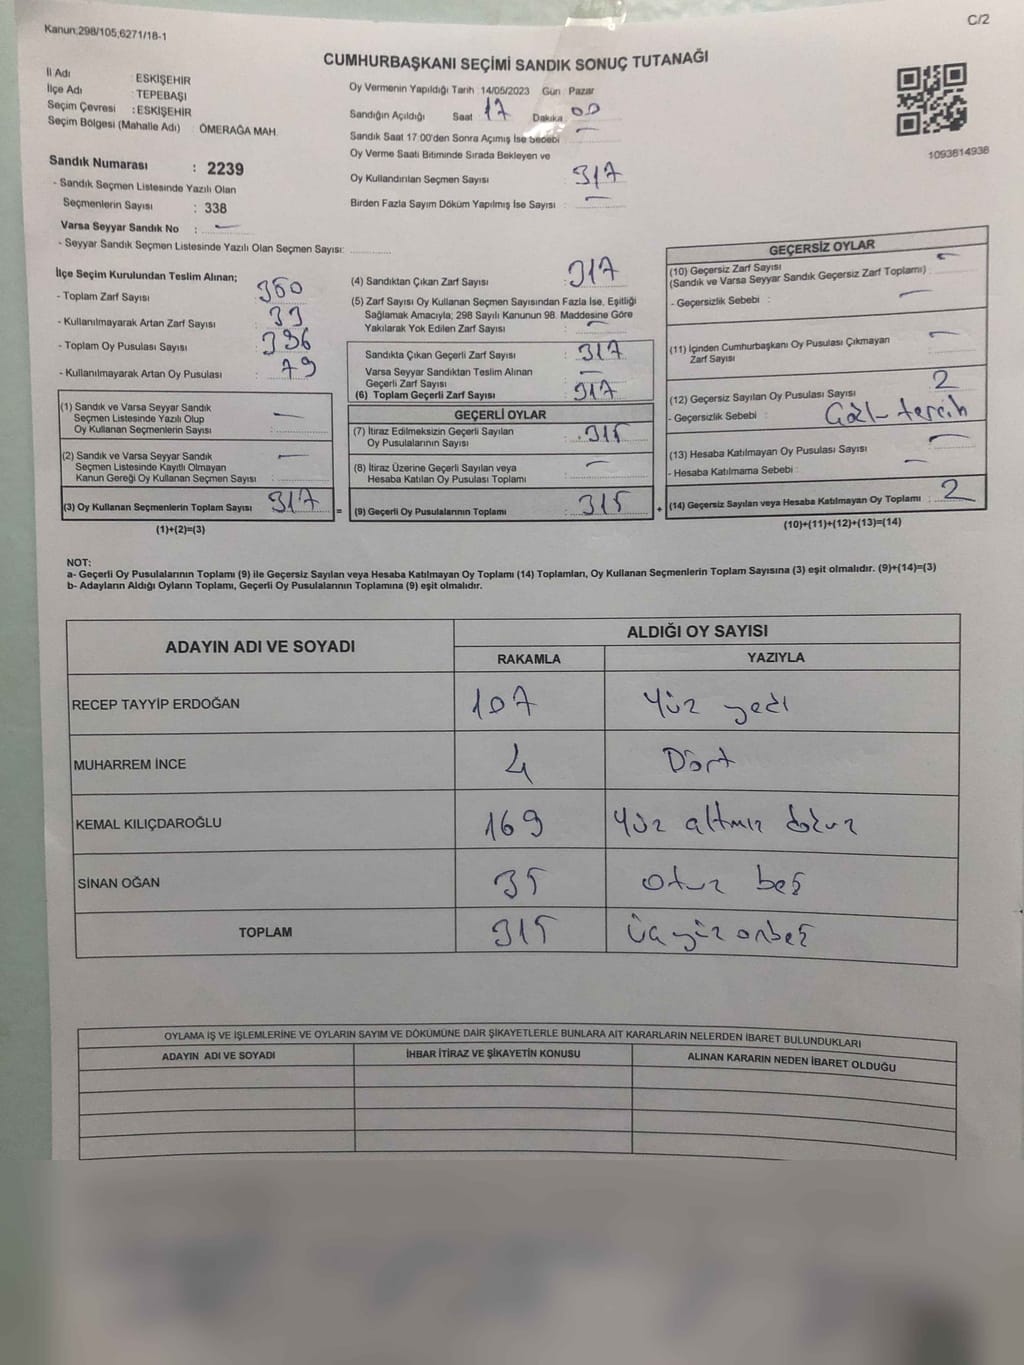 Kanun;298/105,6271/18-1
C/2
CUMHURBAŞKANI SEÇİMİ SANDIK SONUÇ TUTANAĞI
İl Adı : ESKİŞEHİR
İlçe Adı : TEPEBAŞI
Seçim Çevresi : ESKİŞEHİR
Seçim Bölgesi (Mahalle Adı) ÖMERAĞA MAH.
Sandık Numarası : 2239
- Sandık Seçmen Listesinde Yazılı Olan
Seçmenlerin Sayısı : 338
Varsa Seyyar Sandık No : —
- Seyyar Sandık Seçmen Listesinde Yazılı Olan Seçmen Sayısı: ............
Oy Vermenin Yapıldığı Tarih 14/05/2023 Gün Pazar
Sandığın Açıldığı Saat 17 Dakika 00
Sandık Saat 17:00'den Sonra Açımış İse Sebebi —
Oy Verme Saati Bitiminde Sırada Bekleyen ve
Oy Kullandırılan Seçmen Sayısı 317
Birden Fazla Sayım Döküm Yapılmış İse Sayısı : —
1093814938
İlçe Seçim Kurulundan Teslim Alınan;
- Toplam Zarf Sayısı 350
- Kullanılmayarak Artan Zarf Sayısı : 33
- Toplam Oy Pusulası Sayısı : 396
- Kullanılmayarak Artan Oy Pusulası : 79
(1) Sandık ve Varsa Seyyar Sandık
Seçmen Listesinde Yazılı Olup
Oy Kullanan Seçmenlerin Sayısı : —
(2) Sandık ve Varsa Seyyar Sandık
Seçmen Listesinde Kayıtlı Olmayan
Kanun Gereği Oy Kullanan Seçmen Sayısı : —
(3) Oy Kullanan Seçmenlerin Toplam Sayısı 317 =
(1)+(2)=(3)
(4) Sandıktan Çıkan Zarf Sayısı : 317
(5) Zarf Sayısı Oy Kullanan Seçmen Sayısından Fazla İse, Eşitliği
Sağlamak Amacıyla; 298 Sayılı Kanunun 98. Maddesine Göre
Yakılarak Yok Edilen Zarf Sayısı : —
Sandıkta Çıkan Geçerli Zarf Sayısı : 317
Varsa Seyyar Sandıktan Teslim Alınan
Geçerli Zarf Sayısı : —
(6) Toplam Geçerli Zarf Sayısı : 317
GEÇERLİ OYLAR
(7) İtiraz Edilmeksizin Geçerli Sayılan
Oy Pusulalarının Sayısı : 315
(8) İtiraz Üzerine Geçerli Sayılan veya
Hesaba Katılan Oy Pusulası Toplamı : —
(9) Geçerli Oy Pusulalarının Toplamı : 315 +
GEÇERSİZ OYLAR
(10) Geçersiz Zarf Sayısı
(Sandık ve Varsa Seyyar Sandık Geçersiz Zarf Toplamı) : —
- Geçersizlik Sebebi : —
(11) İçinden Cumhurbaşkanı Oy Pusulası Çıkmayan
Zarf Sayısı : —
(12) Geçersiz Sayılan Oy Pusulası Sayısı : 2
- Geçersizlik Sebebi : tercih
(13) Hesaba Katılmayan Oy Pusulası Sayısı : —
- Hesaba Katılmama Sebebi : —
(14) Geçersiz Sayılan veya Hesaba Katılmayan Oy Toplamı : 2
(10)+(11)+(12)+(13)=(14)
NOT:
a- Geçerli Oy Pusulalarının Toplamı (9) ile Geçersiz Sayılan veya Hesaba Katılmayan Oy Toplamı (14) Toplamları, Oy Kullanan Seçmenlerin Toplam Sayısına (3) eşit olmalıdır. (9)+(14)=(3)
b- Adayların Aldığı Oyların Toplamı, Geçerli Oy Pusulalarının Toplamına (9) eşit olmalıdır.
ADAYIN ADI VE SOYADI
ALDIĞI OY SAYISI
RAKAMLA YAZIYLA
RECEP TAYYİP ERDOĞAN 107 Yüz yedi
MUHARREM İNCE 4 Dört
KEMAL KILIÇDAROĞLU 169 Yüz altmız dokuz
SİNAN OĞAN 35 otuz beş
TOPLAM 315 üçyüz onbeş
OYLAMA İŞ VE İŞLEMLERİNE VE OYLARIN SAYIM VE DÖKÜMÜNE DAİR ŞİKAYETLERLE BUNLARA AİT KARARLARIN NELERDEN İBARET BULUNDUKLARI
ADAYIN ADI VE SOYADI İHBAR İTİRAZ VE ŞİKAYETİN KONUSU ALINAN KARARIN NEDEN İBARET OLDUĞU